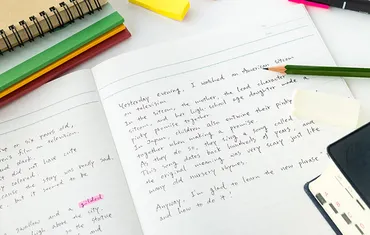 six years old,
film, a selection
and black.
did it have cute
the story was really sad.
but it turned to be
swallow and a gilded
high above the city.
of the statue
and
Yesterday evening, I watched an American sitcom
on television.
In the sitcom, the mother, the lead character
and her high-school age daughter made a
pinky promise together.
In Japan, children also entwine their pinky
together when making a promise.
As they do so, they sing a song called
This song dates back hundreds of years, and
the original meaning was very scary just like
many old nursery rhymes.
Anyway, I'm glad to learn the new phrase
and how to do it.